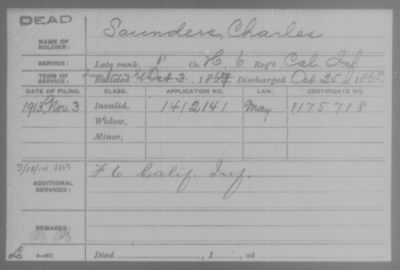 DEAD
NAME OF SOLDIER: Saunders, Charles
SERVICE: Late rank, P Co. H, 6 Reg't Cal. Inf.
TERM OF SERVICE: Enlisted Oct 3, 1864 Discharged Oct 25, 1865
DATE OF FILING. CLASS. APPLICATION NO. LAW. CERTIFICATE NO.
1913, Nov. 3 Invalid, 1412141 May 1175718
Widow,
Minor,
ADDITIONAL SERVICES: F 6 Calif. Inf.
REMARKS:
Died , 1 , at